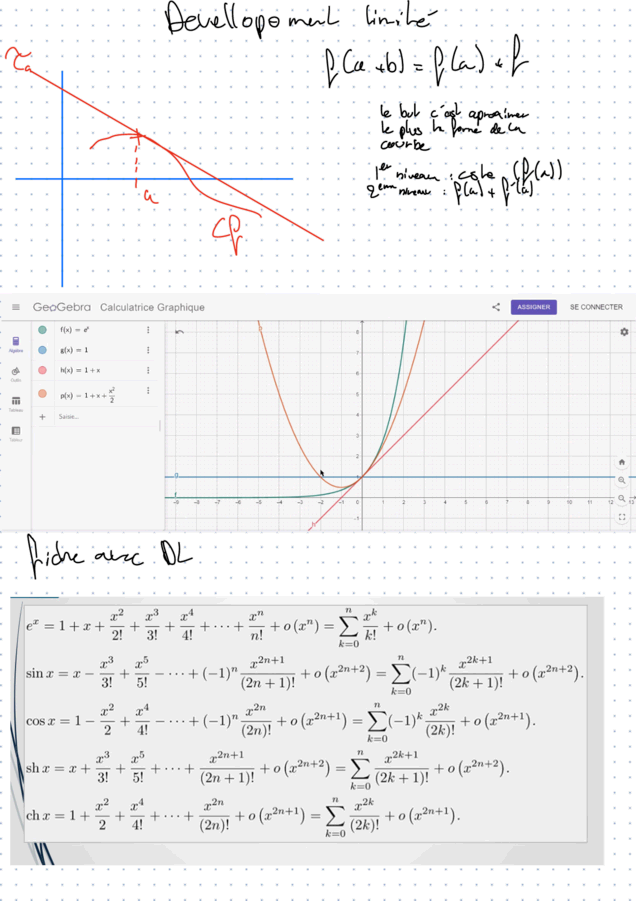 Devellopement limité
τa
f(a+b) = f(a) + f
le but c'est aproximer
le plus la forme de la
courbe
1er niveau : cste (f(a))
2eme niveau : f(a) + f'(a)
a
Cf
GeoGebra Calculatrice Graphique
ASSIGNER
SE CONNECTER
Algèbre
Outils
Tableau
f(x) = e^x
g(x) = 1
h(x) = 1 + x
p(x) = 1 + x + x^2/2
Saisie…
g
f
h
8
7
6
5
4
3
2
1
-1
-8 -7 -6 -5 -4 -3 -2 -1 0 1 2 3 4 5 6 7 8 9 10 11 12 13
fiche avec DL
e^x = 1 + x + x^2/2! + x^3/3! + x^4/4! + ⋯ + x^n/n! + o(x^n) = ∑_{k=0}^{n} x^k/k! + o(x^n).
sin x = x − x^3/3! + x^5/5! − ⋯ + (−1)^n x^{2n+1}/(2n+1)! + o(x^{2n+2}) = ∑_{k=0}^{n} (−1)^k x^{2k+1}/(2k+1)! + o(x^{2n+2}).
cos x = 1 − x^2/2 + x^4/4! − ⋯ + (−1)^n x^{2n}/(2n)! + o(x^{2n+1}) = ∑_{k=0}^{n} (−1)^k x^{2k}/(2k)! + o(x^{2n+1}).
sh x = x + x^3/3! + x^5/5! + ⋯ + x^{2n+1}/(2n+1)! + o(x^{2n+2}) = ∑_{k=0}^{n} x^{2k+1}/(2k+1)! + o(x^{2n+2}).
ch x = 1 + x^2/2 + x^4/4! + ⋯ + x^{2n}/(2n)! + o(x^{2n+1}) = ∑_{k=0}^{n} x^{2k}/(2k)! + o(x^{2n+1}).